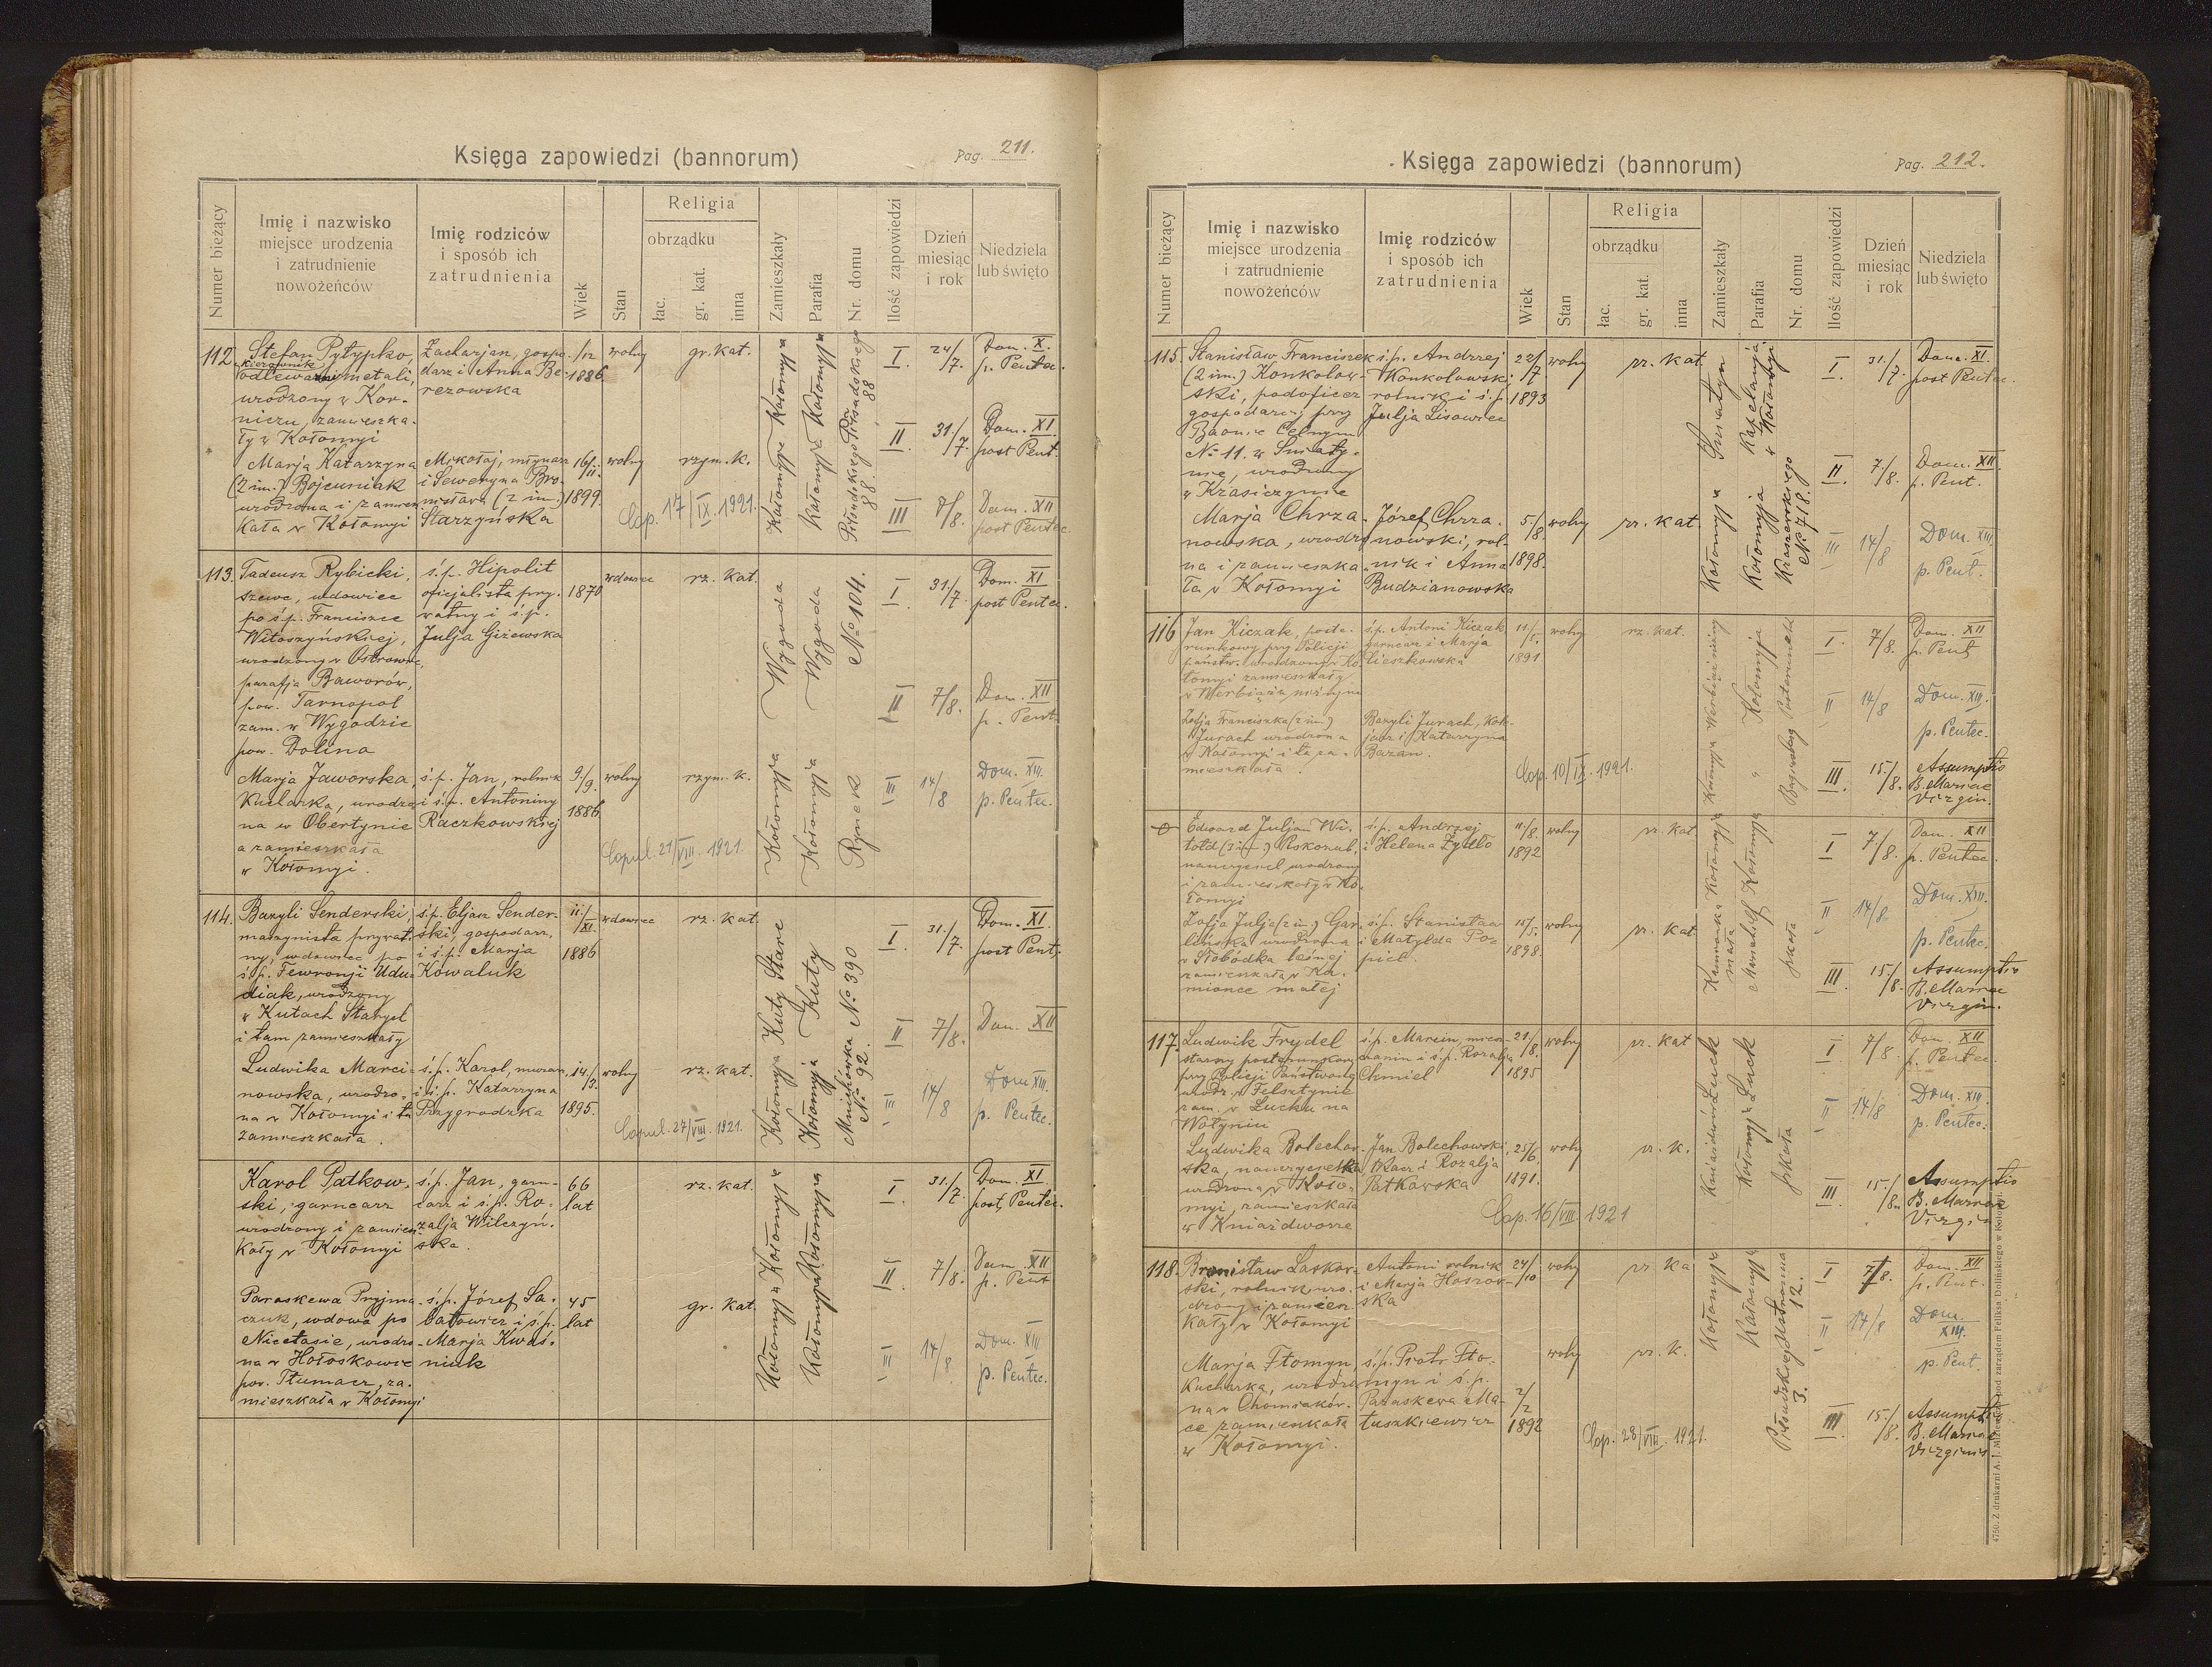 Księga zapowiedzi (bannorum)
Pag. 211.
Numer bieżący
Imię i nazwisko
miejsce urodzenia
i zatrudnienie
nowożeńców
Imię rodziców
i sposób ich
zatrudnienia
Wiek
Stan
Religia
obrządku
łac.
gr. kat.
inna
Zamieszkały
Parafia
Nr. domu
Ilość zapowiedzi
Dzień
miesiąc
i rok
Niedziela
lub święto
112.
Stefan Pyłypko,
kierownik
odlewarni metali,
urodzony w Kor-
niczu, zamieszka-
ły w Kołomyi
Zacharjan, gospo-
darz i Anna Be-
rezowska
/12
1886
wolny
gr. kat.
Kołomyja
Kołomyja
Piłsudskiego
88
I.
24/7.
Dom. X.
p. Pentec.
II
31/7.
Dom. XI
post Pent.
Marja Katarzyna
(2 im.) Bojcuniak
urodzona i zamiesz-
kała w Kołomyi
Mikołaj, młynarz
i Seweryna Bro-
nisława (2 im.)
Starzyńska
16/II.
1899.
wolny
rzym. k.
Cop. 17/IX. 1921.
Kołomyja
Kołomyja
Piłsudskiego
88.
III
8/8.
Dom. XII
post Pentec.
113.
Tadeusz Rybicki,
szewc, wdowiec
po ś.p. Franciszce
Witoszyńskiej,
urodzony w Ostrowie,
parafja Baworów,
pow. Tarnopol
zam. w Wygodzie
pow. Dolina
ś.p. Hipolit
oficjalista pry-
watny i ś.p.
Julja Giżewska
1870
wdowiec
rz. kat.
Wygoda
Wygoda
No 104.
I
31/7.
Dom. XI
post Pentec.
II
7/8.
Dom. XII
p. Pent.
Marja Jaworska,
kucharka, urodzo-
na w Obertynie
a zamieszkała
w Kołomyi.
ś.p. Jan, rolnik
i ś.p. Antoniny
Raczkowskiej
9/9.
1886
wolny
rzym. k.
Copul. 21/VIII. 1921.
Kołomyja
Kołomyja
Rynek
III
14/8
Dom. XIII.
p. Pentec.
114.
Bazyli Senderski,
maszynista prywat-
ny, wdowiec po
ś.p. Fewronji Udu-
diak, urodzony
w Kutach Starych
i tam zamieszkały
ś.p. Eljasz Sender-
ski, gospodarz,
i ś.p. Marja
Kowaluk
11./XI.
1886
wdowiec
rz. kat.
Kuty Stare
Kuty
No 390
I.
31./7.
Dom. XI
post Pent.
II
7/8.
Dom. XII
Ludwika Marci-
nowska, urodzo-
na w Kołomyi i tu
zamieszkała.
ś.p. Karol, murarz
i ś.p. Katarzyna
Przygrodzka
14./2.
1895.
wolny
rz. kat.
Copul. 27/VIII. 1921.
Kołomyja
Kołomyja
Mnichówka
No 92.
III
14/8
Dom XIII.
p. Pentec.
Karol Patkow-
ski, garncarz
urodzony i zamiesz-
kały w Kołomyi
ś.p. Jan, garn-
carz i ś.p. Ro-
zalja Wilczyń-
ska.
66
lat
rz. kat.
Kołomyja
Kołomyja
I.
31./7.
Dom. XI
post Pentec.
II
7/8.
Dom. XII
p. Pent
Paraskewa Pryjma-
czuk, wdowa po
Nicetasie, urodzo-
na w Hołoskowie
pow. Tłumacz, za-
mieszkała w Kołomyi
ś.p. Józef Sa-
batowicz i ś.p.
Marja Kwaś-
niuk
45
lat
gr. kat.
Kołomyja
Kołomyja
III
14/8
Dom. XIII
p. Pentec.
Księga zapowiedzi (bannorum)
Pag. 212.
Numer bieżący
Imię i nazwisko
miejsce urodzenia
i zatrudnienie
nowożeńców
Imię rodziców
i sposób ich
zatrudnienia
Wiek
Stan
Religia
obrządku
łac.
gr. kat.
inna
Zamieszkały
Parafia
Nr. domu
Ilość zapowiedzi
Dzień
miesiąc
i rok
Niedziela
lub święto
115.
Stanisław Franciszek
(2 im.) Konkolow-
ski, podoficer
gospodarczy przy
Baonie Celnym
No 11. w Śniaty-
nie, urodzony
w Krasiczynie
ś.p. Andrzej
Konkolowski
rolnik i ś.p.
Julja Lisowiec
22/7
1893
wolny
rz. kat.
Śniatyn
I.
31./7.
Dom. XI.
post Pentec.
II.
7./8.
Dom. XII
p. Pent.
Marja Chrza-
nowska, urodzo-
na i zamieszka-
ła w Kołomyi
Józef Chrza-
nowski, rol-
nik i Anna
Budzianowska
5./8.
1898.
wolny
rz. kat.
Kołomyja
Kołomyja
Kraszewskiego
No 718.
III
14/8
Dom. XIII
p. Pent.
116
Jan Kiczak, poste-
runkowy przy Policji
państw. urodzony w Ko-
łomyi zamieszkały
w Werbiążu niżnym
ś.p. Antoni Kiczak
garncarz i Marja
Cieszkowska
11/5.
1891
wolny
rz. kat.
I.
7/8.
Dom. XII
p. Pent
II
14/8
Dom. XIII.
p. Pentec.
Zofja Franciszka (2 im.)
Jurach urodzona
w Kołomyi i tu za-
mieszkała.
Bazyli Jurach, kok-
jarz i Katarzyna
Bazan
Cop. 10/IX. 1921.
III.
15./8.
Assumptio
B. Mariae
Virgin.
Edward Juljan Wi-
told (3 im.)
nauczyciel urodzony
i zamieszkały w Ko-
łomyi
ś.p. Andrzej
i Helena Żydło
11./8.
1892
wolny
rz. kat.
Kołomyja
Kołomyja
I
7./8.
Dom. XII
p. Pentec.
II
14/8.
Dom. XIII.
p. Pentec.
Zofja Julja (2 im.) Gar-
lińska urodzona
w Słobódka leśnej
zamieszkała w Ka-
mionce małej
ś.p. Stanisław
i Matylda Po-
piel.
15/5.
1898.
wolny
rz. kat
Kamionka
mała
szkoła
III
15./8.
Assumptio
B. Mariae
Virgin.
117.
Ludwik Frydel
starszy posterunkowy
przy Policji Państwowej
urodz. w Felsztynie
zam. w Łucku na
Wołyniu
ś.p. Marcin, miesz-
czanin i ś.p. Rozalja
Chmiel
21/8.
1895
wolny
rz. kat
Łuck
Łuck
I
7/8.
Dom. XII
p. Pentec.
II
14/8
Dom. XIII.
p. Pentec.
Ludwika Bolechow-
ska, nauczycielka
urodzona w Koło-
myi, zamieszkała
w Kniaźdworze
Jan Bolechowski,
tkacz i Rozalja
Patkowska
25/6.
1891.
wolny
rz. k.
Cop. 16/VIII. 1921
Kniaźdwór
Kołomyja
szkoła
III.
15./8.
Assumptio
B. Mariae
Virgin
118.
Bronisław Laskow-
ski, rolnik uro-
dzony i zamiesz-
kały w Kołomyi
Antoni rolnik
i Marja Hoszow-
ska
24/10
wolny
rz. ka
Kołomyja
Kołomyja
12.
I
7/8.
Dom. XII
p. Pent.
II
14/8
Dom.
XIII.
p. Pent.
Marja Ftomyn,
kucharka, urodzo-
na w Chomiaków-
ce zamieszkała
w Kołomyi.
ś.p. Piotr Fto-
myn i ś.p.
Paraskewa Ma-
tuszkiewicz
2/2
1892
wolny
rz. k.
Cop. 28/VIII. 1921.
Piłsudskiego
3.
III
15./8.
Assumptio
B. Mariae
Virginis